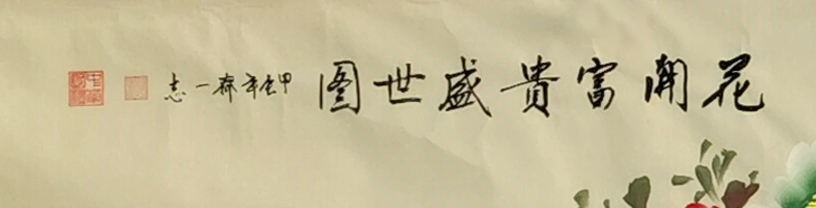 花開富貴盛世图
甲午年春一志